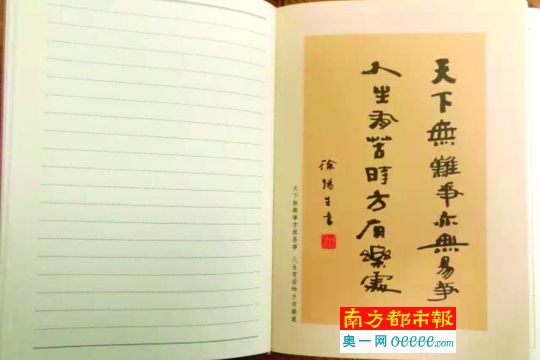 天下無難事亦無易事
人生有苦時方有樂處
徐揚生書
天下無難事亦無易事 人生有苦時方有樂處
南方都市報
奥一网 oeeee.com